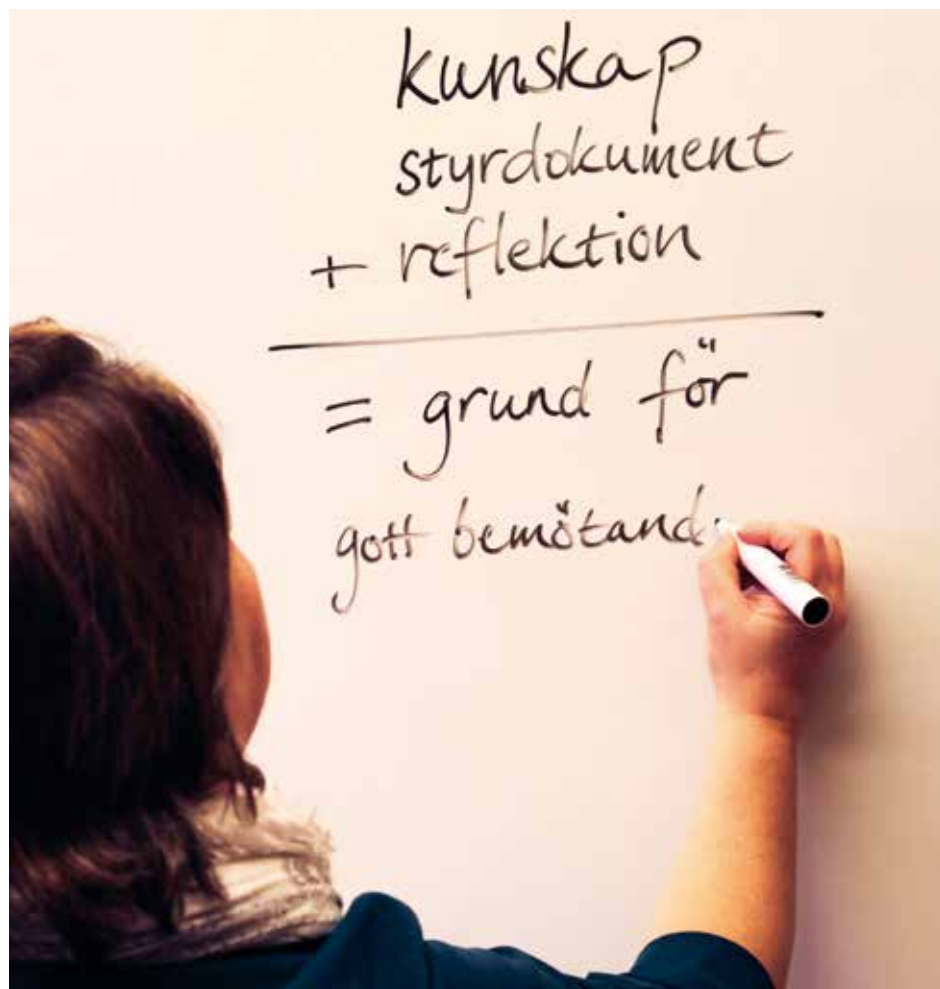 kunskap
styrdokument
+ reflektion
= grund för
gott bemötand